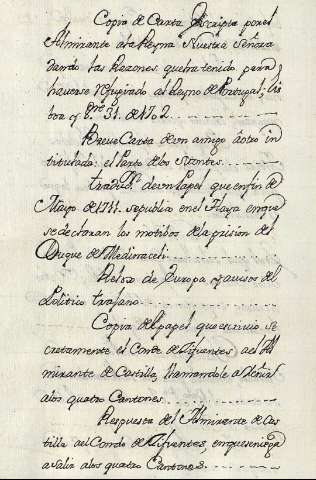 Copia de Carta Escripta por el
Almirante ala Reyna Nuestra Señora
dando las Razones que ha tenido para
haverse refugiado al Reyno de Portugal; Lis
boa y 31. de 1702
Breve Carta de un amigo à otro in
titulada: el Parto de los Montes
traduc.n de un Papel que en fin de
Mayo de 1711. se publico en el Haya en que
se declaran los motibos de la prision del
Duque de Medinaceli
Relox de Europa y avisos del
Politico
Copia del papel que envio se
cretamente el Conde de Cifuentes a el Al
mirante de Castilla, llamandole a Reñir
a los quatro Cantones
Respuesta del Almirante de Cas
tilla a el Conde de Cifuentes, en que se niega
a salir a los quatro Cantones